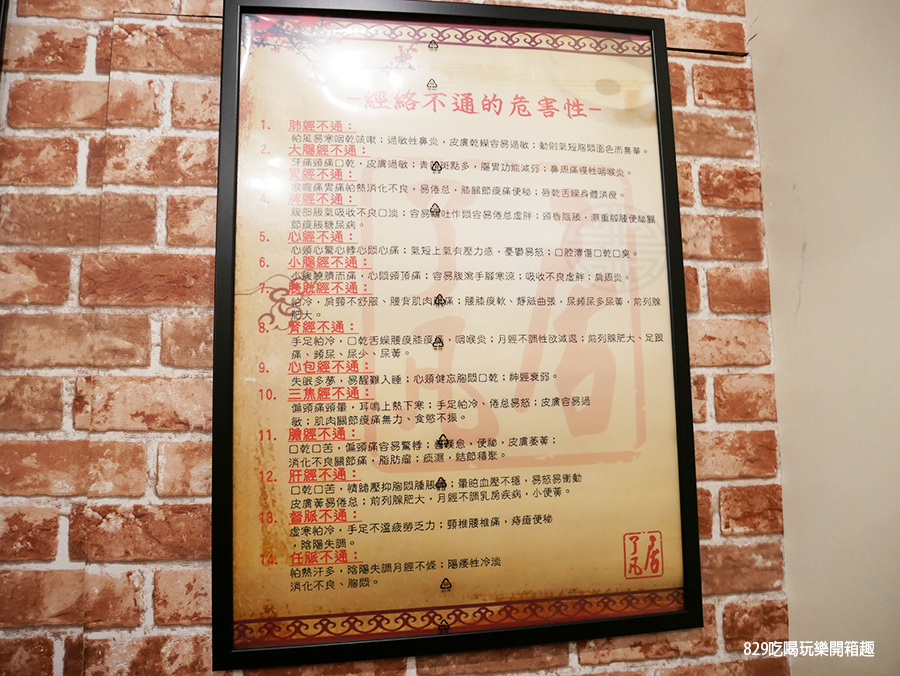 -經絡不通的危害性-
1. 肺經不通：
怕風易寒咽乾咳嗽；過敏性鼻炎，皮膚乾燥容易過敏；動則氣短胸悶面色而無華。
2. 大腸經不通：
牙痛頭痛口乾，皮膚過敏；青 斑點多，腸胃功能減弱；鼻周痛慢性咽喉炎。
3. 胃經不通：
喉嚨痛胃痛怕熱消化不良，易倦怠，膝關節痠痛便秘；唇乾舌燥身體消瘦。
4. 脾經不通：
腹部脹氣吸收不良口淡；容易 吐作悶容易倦怠虛胖；頭昏 脹，濕重腳腫便秘關
節痠脹糖尿病。
5. 心經不通：
心煩心驚心悸心悶心痛；氣短上氣有壓力感，憂鬱易怒；口腔潰傷口乾口臭。
6. 小腸經不通：
小腹繞臍而痛，心悶頭頂痛；容易腹瀉手腳寒涼；吸收不良虛胖；肩周炎。
7. 膀胱經不通：
怕冷，肩頸不舒服、腰背肌肉 痛；腰膝痠軟、靜脈曲張，尿頻尿多尿黃，前列腺
肥大。
8. 腎經不通：
手足怕冷，口乾舌燥腰痠膝痠 ，咽喉炎；月經不調性欲減退；前列腺肥大、足跟
痛、頻尿、尿少、尿黃。
9. 心包經不通：
失眠多夢，易醒難入睡；心煩健忘胸悶口乾；神經衰弱。
10. 三焦經不通：
偏頭痛頭暈，耳鳴上熱下寒；手足怕冷、倦怠易怒；皮膚容易過
敏；肌肉關節痠痛無力、食慾不振。
11. 膽經不通：
口乾口苦，偏頭痛容易驚悸；善嘆息，便秘，皮膚萎黃；
消化不良關節痛，脂肪瘤；痰濕，結節積聚。
12. 肝經不通：
口乾口苦，情緒壓抑胸悶腫脹 ；暈眩血壓不穩，易怒易衝動
皮膚黃易倦怠；前列腺肥大，月經不調乳房疾病，小便黃。
13. 督脈不通：
虛寒怕冷，手足不溫疲勞乏力；頸椎腰椎痛，痔瘡便秘
，陰陽失調。
14. 任脈不通：
怕熱汗多，陰陽失調月經不條；陽痿性冷淡
消化不良、胸悶。
了凡居
829吃喝玩樂開箱趣